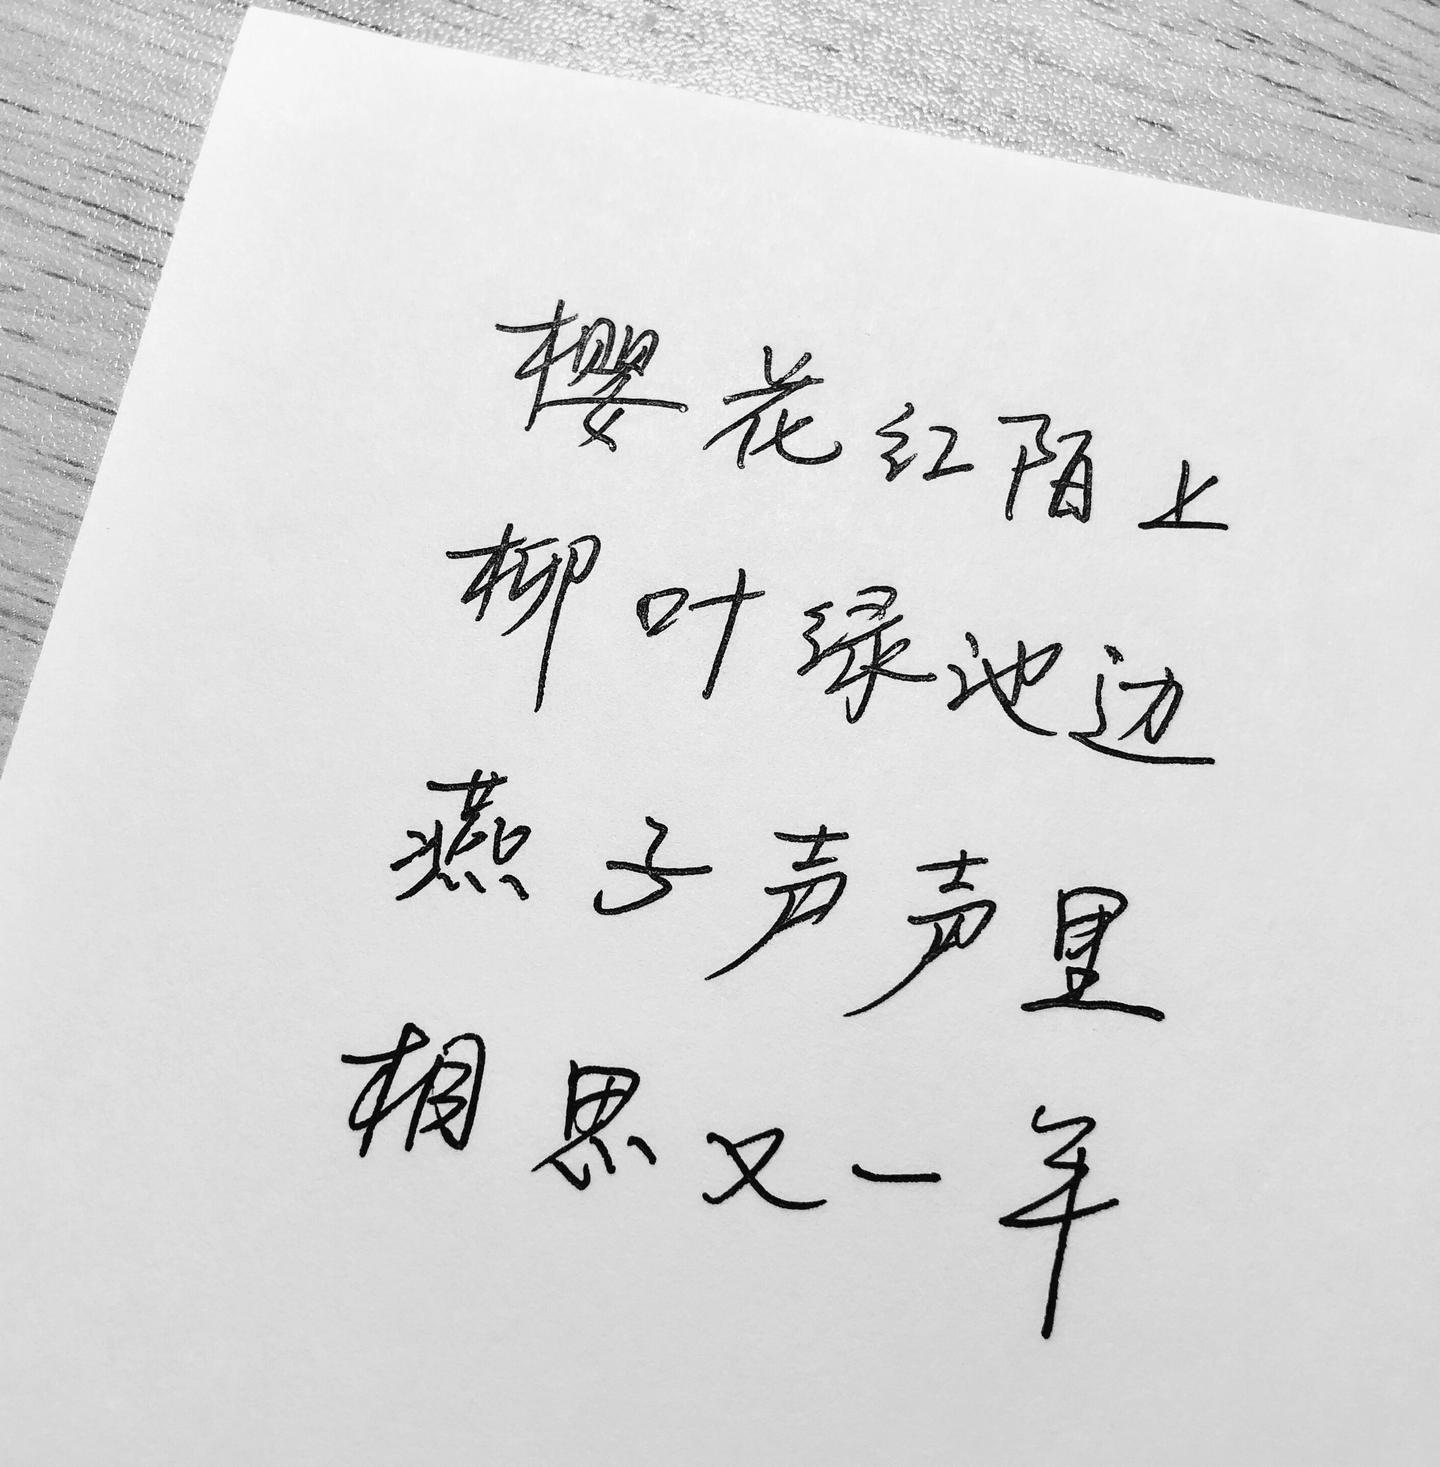 樱花红陌上
柳叶绿池边
燕子声声里
相思又一年